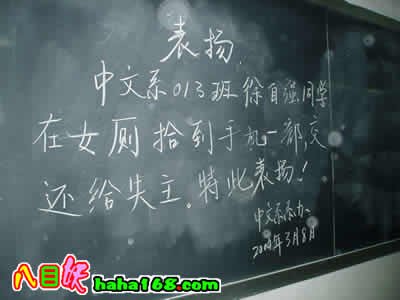 表扬
中文系013班徐自强同学
在女厕拾到手机一部,交
还给失主。特此表扬!
中文系
3月8日
八目妖
haha168.com